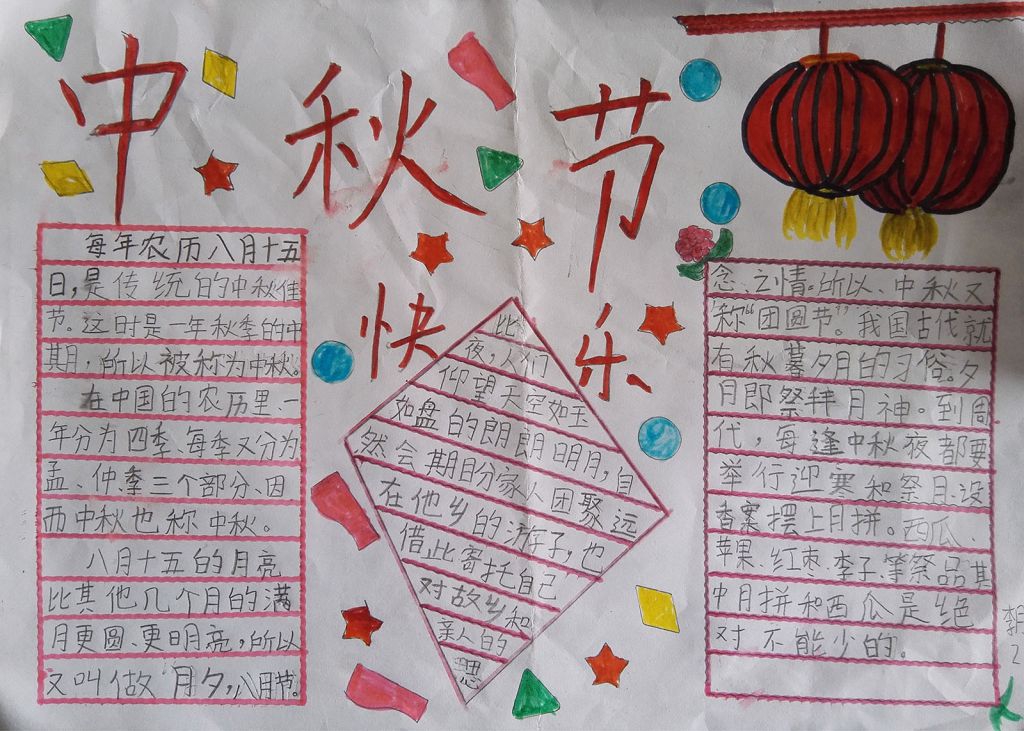 中秋节
快乐
每年农历八月十五
日,是传统的中秋佳
节。这时是一年秋季的中
期,所以被称为中秋。
在中国的农历里、一
年分为四季、每季又分为
孟、仲、季三个部分、因
而中秋也称中秋。
八月十五的月亮
比其他几个月的满
月更圆、更明亮,所以
又叫做“月夕,八月节。
此
夜,人们
仰望天空如玉
如盘的朗朗明月,自
然会期目分家人团聚远
在他乡的游子,也
借此寄托自己
对故乡和
亲人的
思
念、之情。所以、中秋又
称“团圆节”。我国古代就
有秋暮夕月的习俗。夕
月即祭拜月神。到周
代,每逢中秋夜都要
举行迎寒和祭月、设
香案摆上月拼。西瓜、
苹果、红枣、李子、等祭品其
中月拼和西瓜是绝
对不能少的。
2